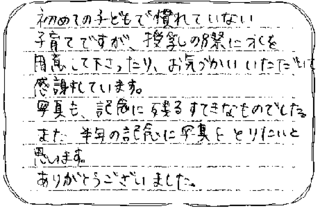 初めての子どもで慣れていない
子育てですが、授乳の際に水を
用意して下さったり、お気づかいいただいて
感謝しています。
写真も、記念に残るすてきなものでした。
また 半年の記念に写真をとりたいと
思います。
ありがとうございました。